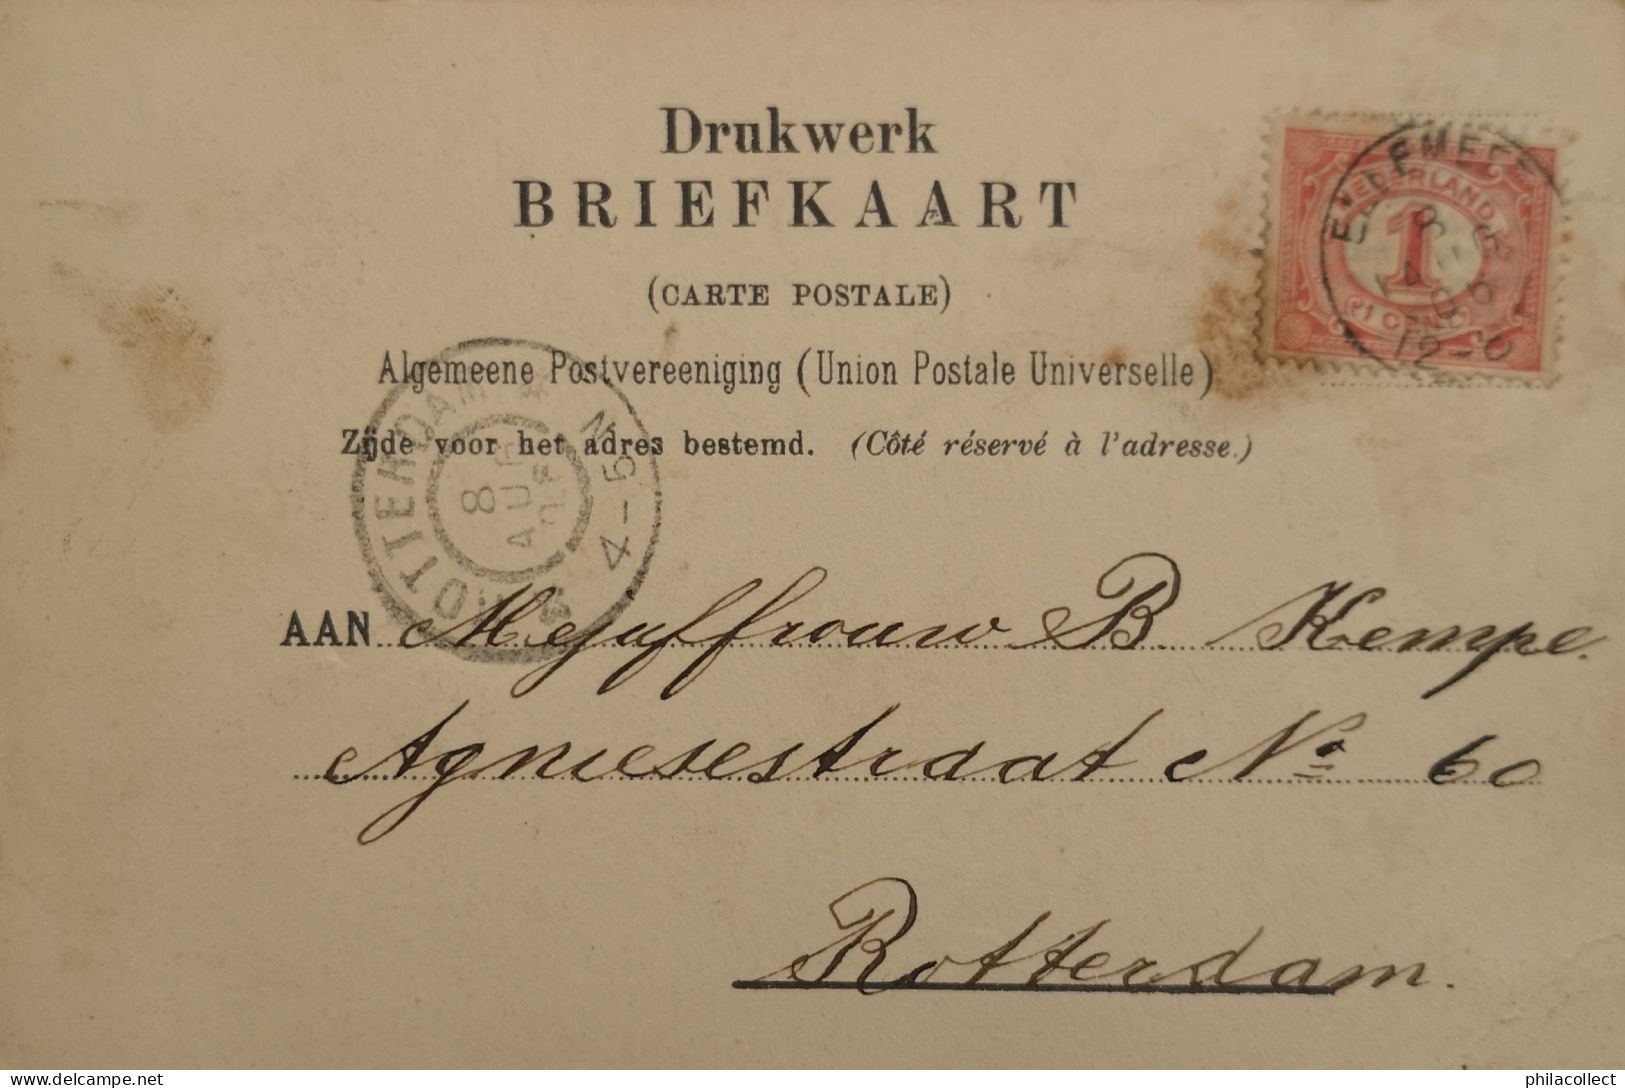 Drukwerk
BRIEFKAART
(CARTE POSTALE)
Algemeene Postvereeniging (Union Postale Universelle)
Zijde voor het adres bestemd. (Côté réservé à l'adresse.)
NEDERLAND
1
1 CENT
ROTTERDAM
8 AUG
4-5 N
AAN Mejuffrouw B. Kempe.
Agniesestraat No 60
Rotterdam.
philacollect